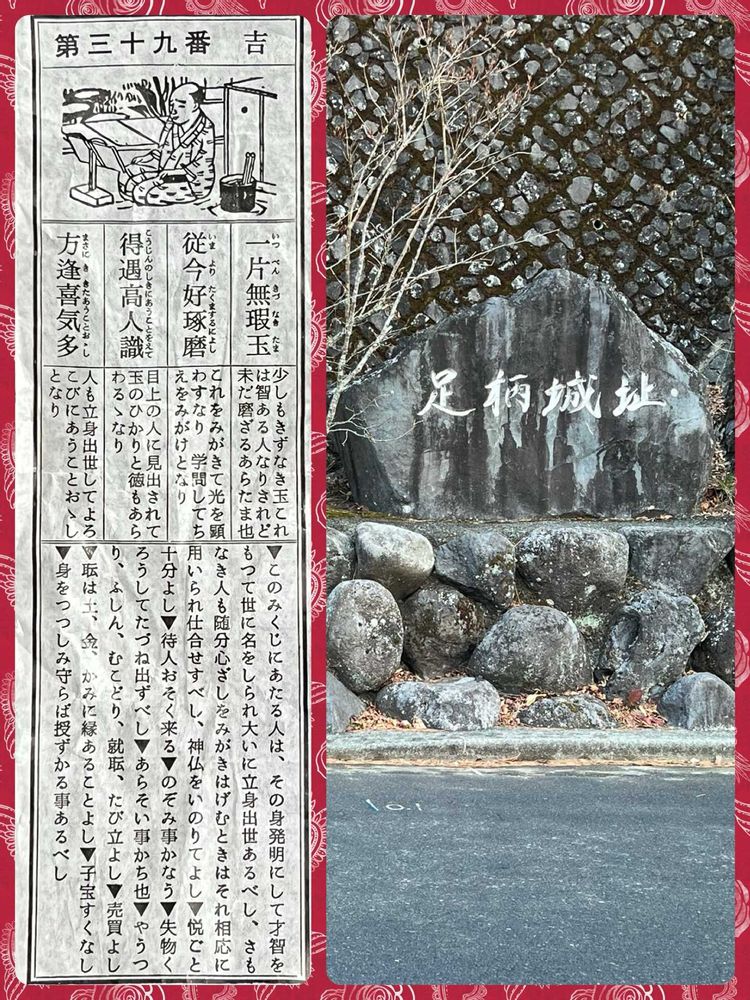 第三十九番 吉
いつ ぺん きづ なき たま
一片無瑕玉
いま より たくまするによし
従今好琢磨
こうじんのしきにあうことをえて
得遇高人識
まさに き きたあうことおゝし
方逢喜気多
少しもきずなき玉これ
は智ある人なりされど
未だ磨ざるあらたま也
これをみがきて光を顕
わすなり 学問してち
えをみがけとなり
目上の人に見出されて
玉のひかりと徳もあら
わるゝなり
人も立身出世してよろ
こびにあうことおゝし
となり
▼このみくじにあたる人は、その身発明にして才智を
もつて世に名をしられ大いに立身出世あるべし、さも
なき人も随分心ざしをみがきはげむときはそれ相応に
用いられ仕合せすべし、神仏をいのりてよし▼悦ごと
十分よし▼待人おそく来る▼のぞみ事かなう▼失物く
ろうしてたづね出ずべし▼あらそい事かち也▼やうつ
り、ふしん、むこどり、就耺、たび立よし▼売買よし
▼耺は土、金、かみに縁あることよし▼子宝すくなし
▼身をつつしみ守らば授ずかる事あるべし
足柄城址